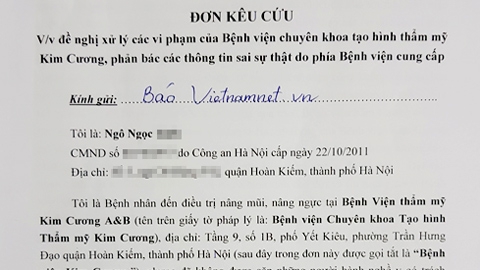 ĐƠN KÊU CỨU
V/v đề nghị xử lý các vi phạm của Bệnh viện chuyên khoa tạo hình thẩm mỹ
Kim Cương, phản bác các thông tin sai sự thật do phía Bệnh viện cung cấp
Kính gửi: Báo Vietnamnet.vn
Tôi là: Ngô Ngọc
CMND số do Công an Hà Nội cấp ngày 22/10/2011
Địa chỉ: quận Hoàn Kiếm, thành phố Hà Nội
Tôi là Bệnh nhân đến điều trị nâng mũi, nâng ngực tại Bệnh Viện thẩm mỹ
Kim Cương A&B (tên trên giấy tờ pháp lý là: Bệnh viện Chuyên khoa Tạo hình
Thẩm mỹ Kim Cương), địa chỉ: Tầng 9, số 1B, phố Yết Kiêu, phường Trần Hưng
Đạo quận Hoàn Kiếm, thành phố Hà Nội (sau đây trong đơn này được gọi tắt là "Bệnh